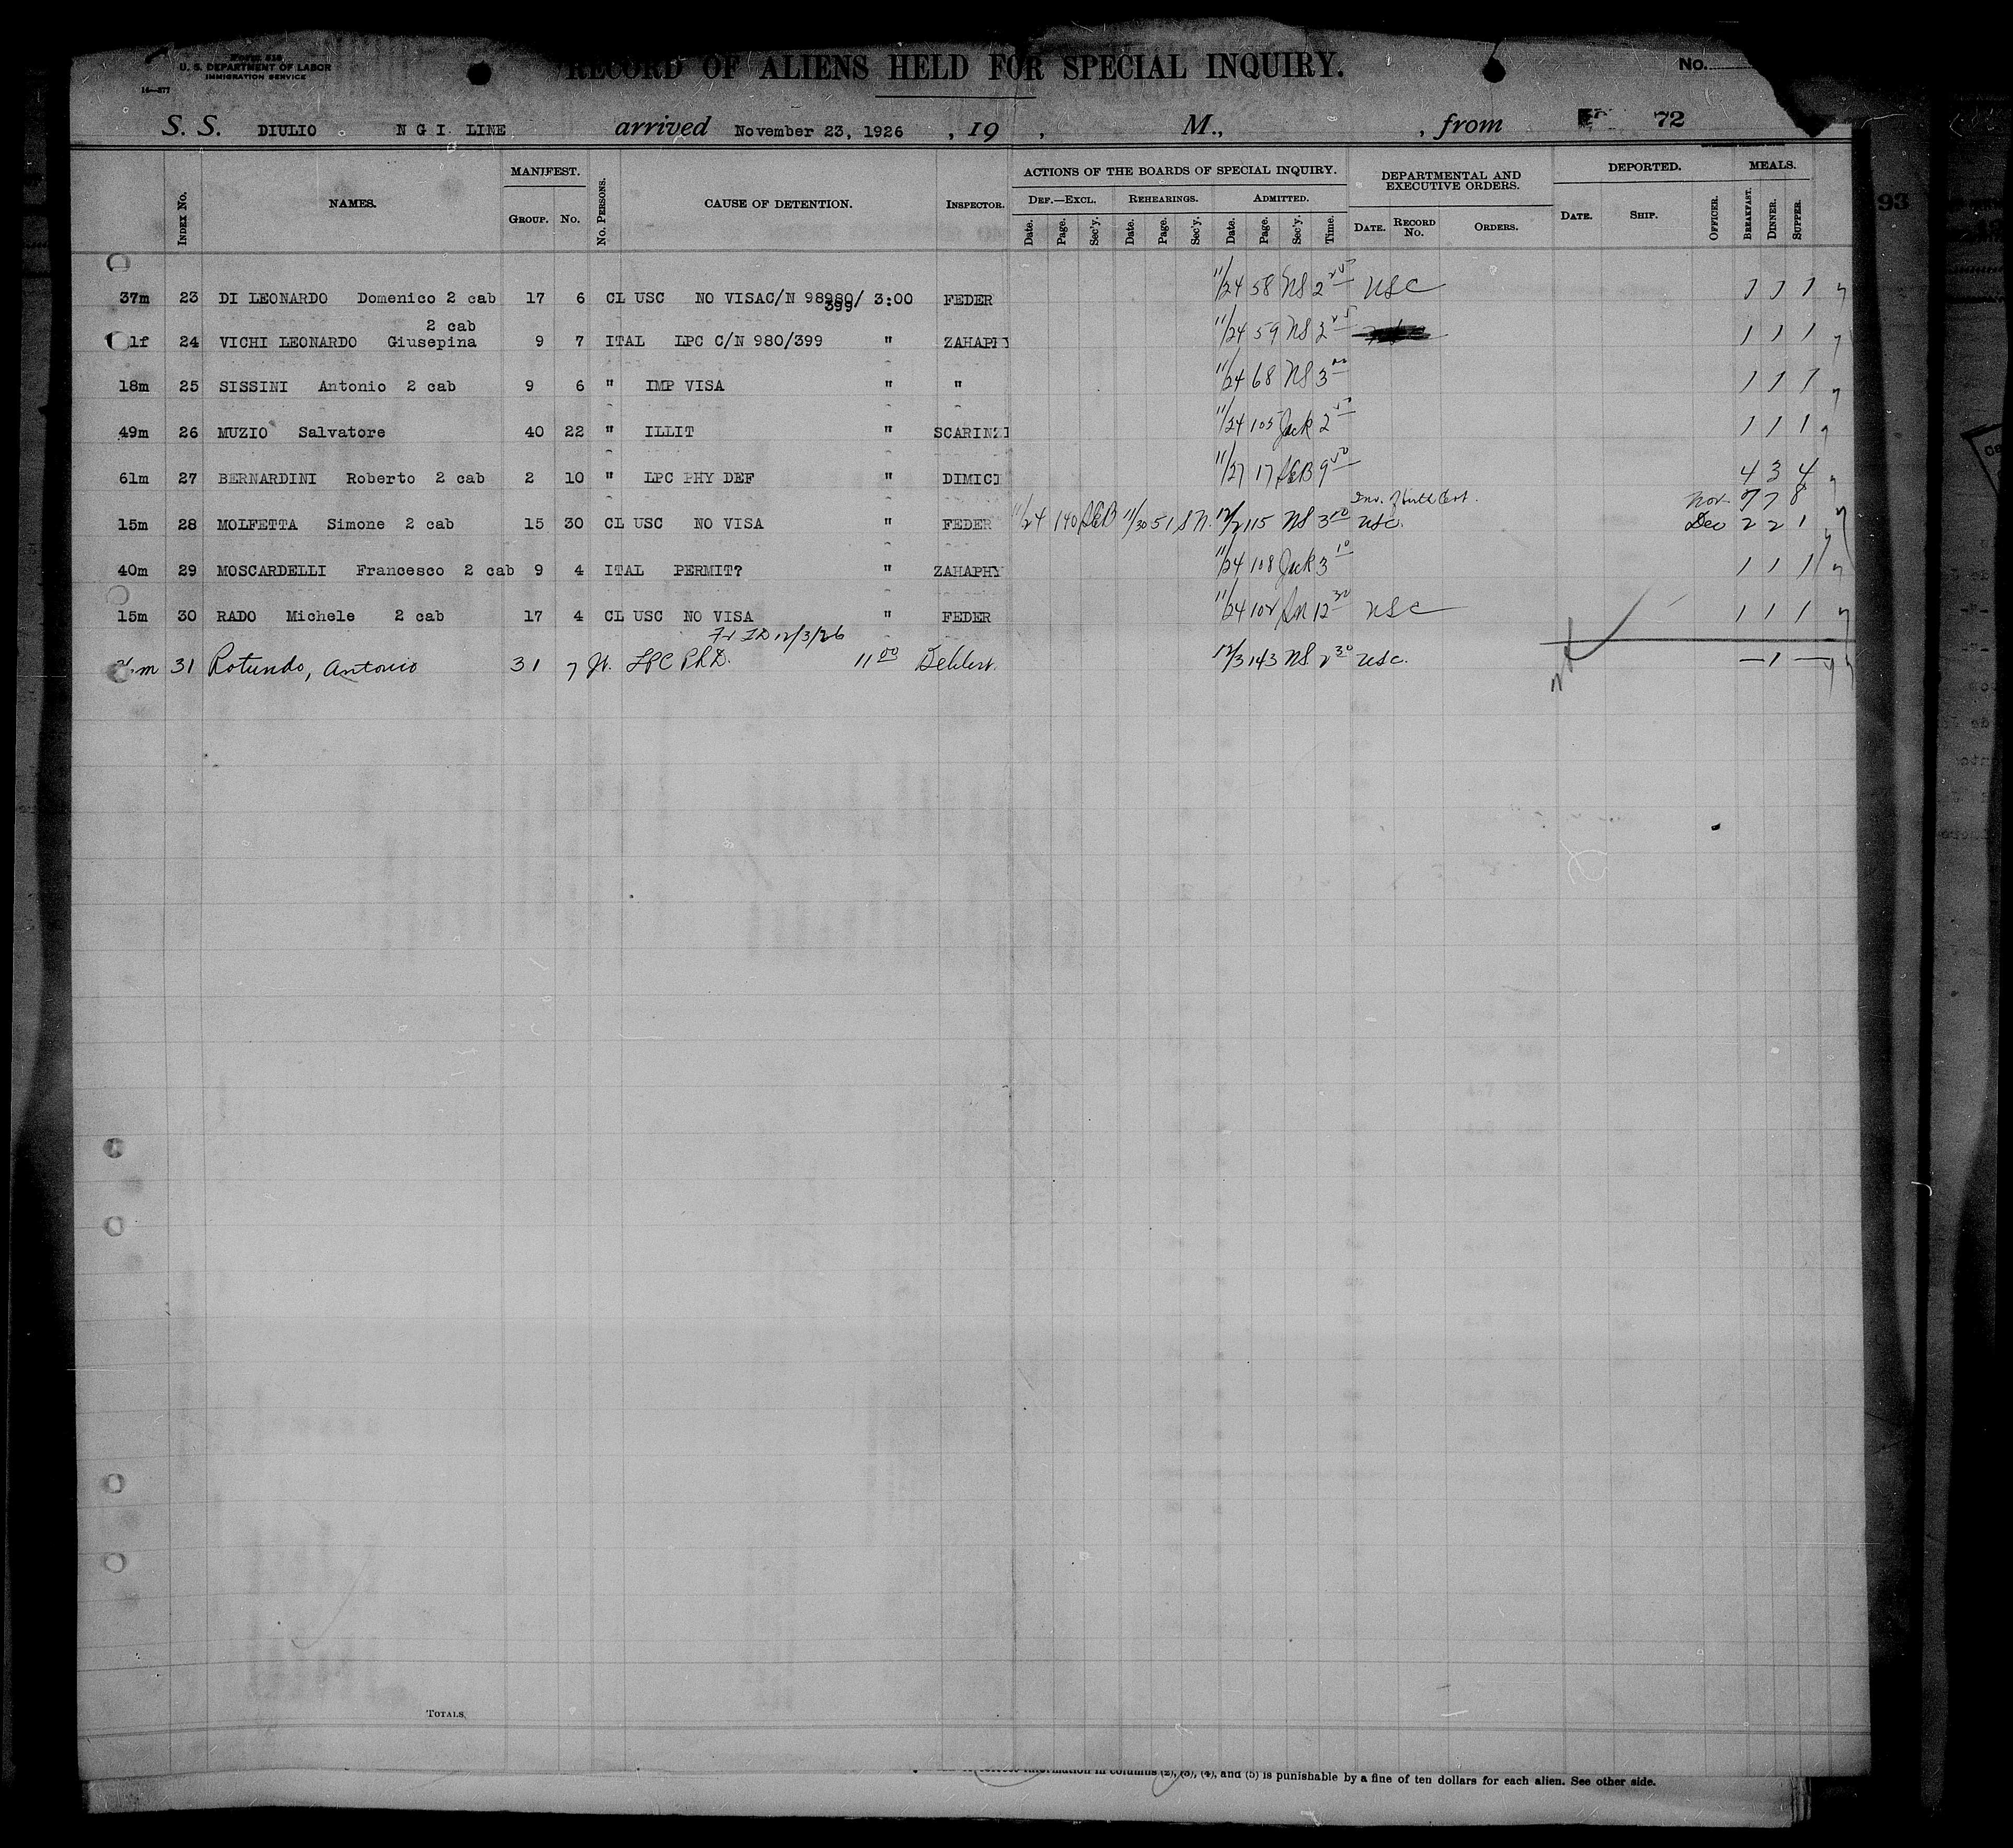 Form 518
U. S. DEPARTMENT OF LABOR
IMMIGRATION SERVICE
14—377
RECORD OF ALIENS HELD FOR SPECIAL INQUIRY.
No.
S. S. DIULIO N G I LINE arrived November 23, 1926 , 19 , M., , from 72
MANIFEST. ACTIONS OF THE BOARDS OF SPECIAL INQUIRY. DEPARTMENTAL AND EXECUTIVE ORDERS. DEPORTED. MEALS.
Index No. NAMES. Group. No. No. Persons. CAUSE OF DETENTION. Inspector. Def.—Excl. Rehearings. Admitted.
Date. Page. Sec'y. Date. Page. Sec'y. Date. Page. Sec'y. Time. Date. Record No. Orders. Date. Ship. Officer. Breakfast. Dinner. Supper.
93
37m 23 DI LEONARDO Domenico 2 cab 17 6 CL USC NO VISA C/N 98980/ 3:00 FEDER 11/24 58 NS 2 USC 1 1 1
399
2 cab
1f 24 VICHI LEONARDO Giusepina 9 7 ITAL LPC C/N 980/399 " ZAHAPHY 11/24 59 NS 1 1 1
18m 25 SISSINI Antonio 2 cab 9 6 " IMP VISA " " 11/24 68 NS 3 00 1 1 1
49m 26 MUZIO Salvatore 40 22 " ILLIT " SCARINZI 11/24 105 Jack 2 1 1 1
61m 27 BERNARDINI Roberto 2 cab 2 10 " LPC PHY DEF " DIMICI 11/27 17 SEB 9 4 3 4
Nov. 7 7 8
15m 28 MOLFETTA Simone 2 cab 15 30 CL USC NO VISA " FEDER 11/24 140 SEB 11/30 51 SN. 12/2 115 NS 3 USC. Dec 2 2 1
40m 29 MOSCARDELLI Francesco 2 cab 9 4 ITAL PERMIT? " ZAHAPHY 11/24 108 Jack 3 10 1 1 1
15m 30 RADO Michele 2 cab 17 4 CL USC NO VISA " FEDER 11/24 102 12 30 USC 1 1 1
12/3/26
m 31 Rotundo, Antonio 31 7 It. LPC Ph.D. 11 00 12/3 143 NS 2 30 USC. — 1 —
Totals
information in columns (2), (3), (4), and (5) is punishable by a fine of ten dollars for each alien. See other side.